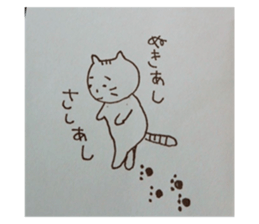 ぬきあし
さしあし